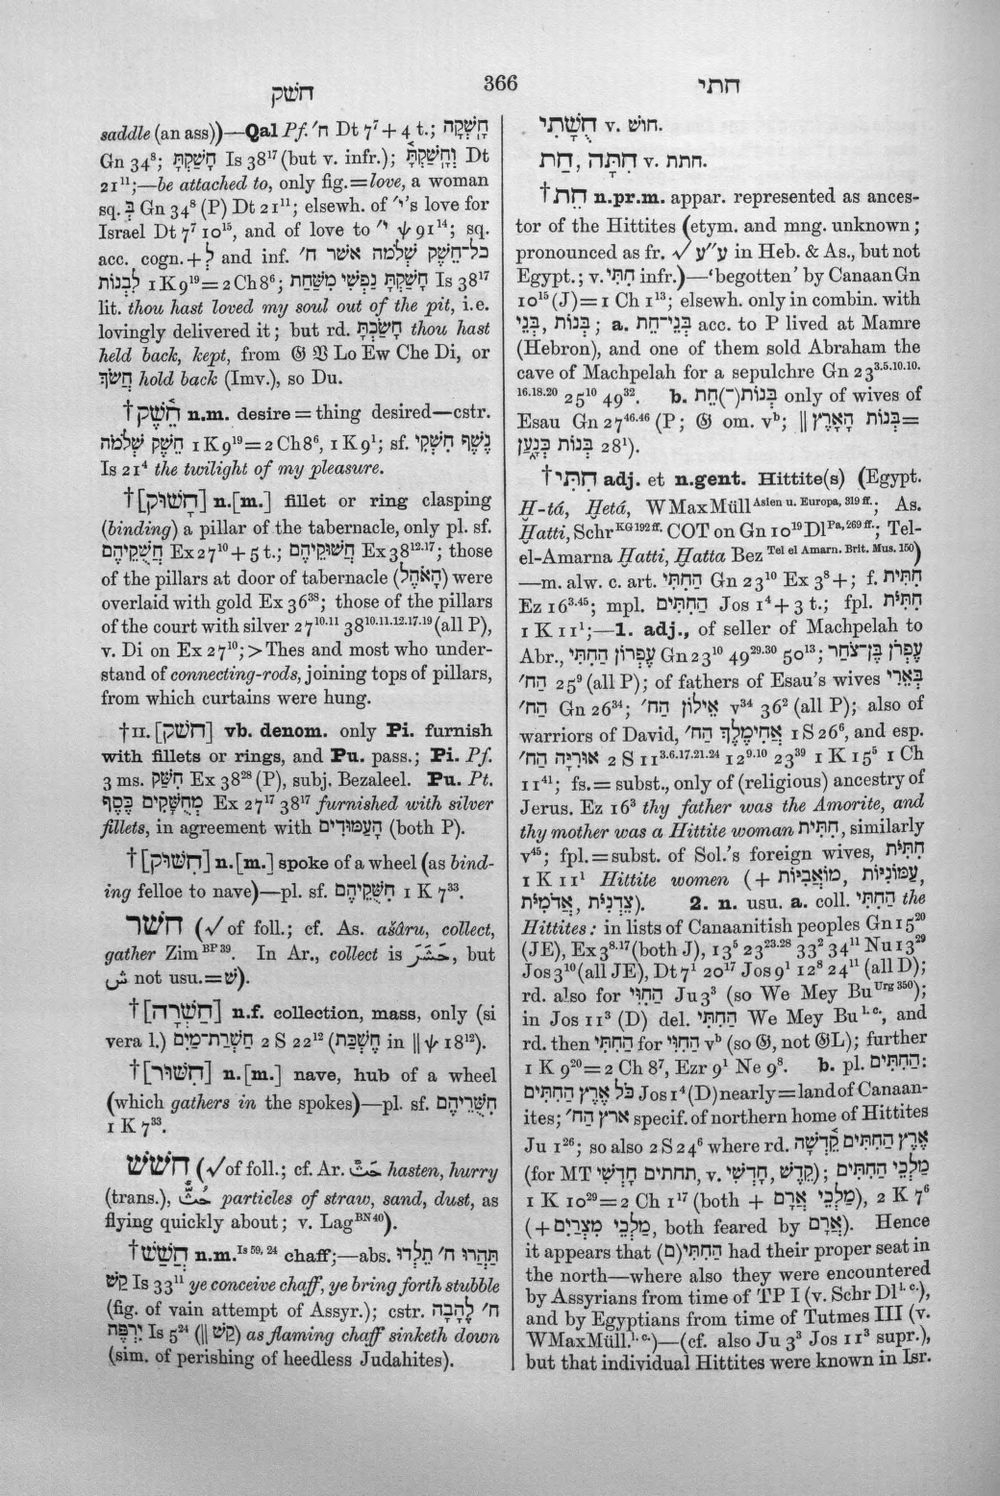 חשׁק
366
חתי
saddle (an ass))—Qal Pf. ׳ח Dt 7⁷ + 4 t.; חָֽשְׁקָה
Gn 34⁸; חָשַׁקְתָּ Is 38¹⁷ (but v. infr.); וְחָשַׁקְתָּ Dt
21¹¹;—be attached to, only fig.=love, a woman
sq. בְּ Gn 34⁸ (P) Dt 21¹¹; elsewh. of ׳י's love for
Israel Dt 7⁷ 10¹⁵, and of love to ׳י ψ 91¹⁴; sq.
acc. cogn. + לְ and inf. כל־חֵשֶׁק שְׁלֹמֹה אשׁר ח׳
לִבְנוֹת 1 K 9¹⁹=2 Ch 8⁶; חָשַׁקְתָּ נַפְשִׁי מִשַּׁחַת Is 38¹⁷
lit. thou hast loved my soul out of the pit, i.e.
lovingly delivered it; but rd. חָשַׂכְתָּ thou hast
held back, kept, from 𝔊 𝔙 Lo Ew Che Di, or
חֲשֹׂךְ hold back (Imv.), so Du.
†חֵ֫שֶׁק n.m. desire = thing desired—cstr.
חֵשֶׁק שְׁלֹמֹה 1 K 9¹⁹=2 Ch 8⁶, 1 K 9¹; sf. נֶשֶׁף חִשְׁקִי
Is 21⁴ the twilight of my pleasure.
†[חָשׁוּק] n.[m.] fillet or ring clasping
(binding) a pillar of the tabernacle, only pl. sf.
חֲשֻׁקֵיהֶם Ex 27¹⁰ + 5 t.; חֲשׁוּקֵיהֶם Ex 38¹²·¹⁷; those
of the pillars at door of tabernacle (הָאֹהֶל) were
overlaid with gold Ex 36³⁸; those of the pillars
of the court with silver 27¹⁰·¹¹ 38¹⁰·¹¹·¹²·¹⁷·¹⁹ (all P),
v. Di on Ex 27¹⁰; > Thes and most who under-
stand of connecting-rods, joining tops of pillars,
from which curtains were hung.
†II. [חשׁק] vb. denom. only Pi. furnish
with fillets or rings, and Pu. pass.; Pi. Pf.
3 ms. חִשַּׁק Ex 38²⁸ (P), subj. Bezaleel. Pu. Pt.
מְחֻשָּׁקִים כֶּסֶף Ex 27¹⁷ 38¹⁷ furnished with silver
fillets, in agreement with הָעַמּוּדִים (both P).
†[חִשּׁוּק] n.[m.] spoke of a wheel (as bind-
ing felloe to nave)—pl. sf. חִשֻּׁקֵיהֶם 1 K 7³³.
חשׁר (√ of foll.; cf. As. ašâru, collect,
gather Zim BP 39. In Ar., collect is حَشَرَ, but
ش not usu.=שׁ).
†[חַשְׁרָה] n.f. collection, mass, only (si
vera l.) חַשְׁרַת־מַיִם 2 S 22¹² (חֶשְׁכַת in ∥ ψ 18¹²).
†[חִשּׁוּר] n.[m.] nave, hub of a wheel
(which gathers in the spokes)—pl. sf. חִשֻּׁרֵיהֶם
1 K 7³³.
חשׁשׁ (√ of foll.; cf. Ar. حَثَّ hasten, hurry
(trans.), حُثّ particles of straw, sand, dust, as
flying quickly about; v. Lag BN 40).
†חֲשַׁשׁ n.m. Is 59, 24 chaff;—abs. תַּהֲרוּ ח׳ תֵּלְדוּ
קַשׁ Is 33¹¹ ye conceive chaff, ye bring forth stubble
(fig. of vain attempt of Assyr.); cstr. ח׳ לֶהָבָה
יִרְפֶּה Is 5²⁴ (∥ קַשׁ) as flaming chaff sinketh down
(sim. of perishing of heedless Judahites).
חֻשָׁתִי v. חושׁ.
חִתָּה, חַת v. חתת.
†חֵת n.pr.m. appar. represented as ances-
tor of the Hittites (etym. and mng. unknown;
pronounced as fr. √ ע״ע in Heb. & As., but not
Egypt.; v. חִתִּי infr.)—'begotten' by Canaan Gn
10¹⁵ (J)=1 Ch 1¹³; elsewh. only in combin. with
בְּנוֹת, בְּנֵי; a. בְּנֵי־חֵת acc. to P lived at Mamre
(Hebron), and one of them sold Abraham the
cave of Machpelah for a sepulchre Gn 23³·⁵·¹⁰·¹⁰·
¹⁶·¹⁸·²⁰ 25¹⁰ 49³². b. בְּנוֹת(־)חֵת only of wives of
Esau Gn 27⁴⁶·⁴⁶ (P; 𝔊 om. vᵇ; ∥ בְּנוֹת הָאָרֶץ=
בְּנוֹת כְּנָעַן 28¹).
†חִתִּי adj. et n.gent. Hittite(s) (Egypt.
Ḫ-tá, Ḫetá, W Max Müll Asien u. Europa, 319 ff.; As.
Ḫatti, Schr KG 192 ff. COT on Gn 10¹⁹ Dl Pa, 269 ff.; Tel-
el-Amarna Ḫatti, Ḫatta Bez Tel el Amarn. Brit. Mus. 150)
—m. alw. c. art. הַחִתִּי Gn 23¹⁰ Ex 3⁸ +; f. חִתִּית
Ez 16³·⁴⁵; mpl. הַחִתִּים Jos 1⁴ + 3 t.; fpl. חִתִּיֹּת
1 K 11¹;—1. adj., of seller of Machpelah to
Abr., עֶפְרוֹן הַחִתִּי Gn 23¹⁰ 49²⁹·³⁰ 50¹³; עֶפְרֹן בֶּן־צֹחַר
הַח׳ 25⁹ (all P); of fathers of Esau's wives בְּאֵרִי
הַח׳ Gn 26³⁴; אֵילוֹן הַח׳ v³⁴ 36² (all P); also of
warriors of David, אֲחִימֶלֶךְ הַח׳ 1 S 26⁶, and esp.
אוּרִיָּה הַח׳ 2 S 11³·⁶·¹⁷·²¹·²⁴ 12⁹·¹⁰ 23³⁹ 1 K 15⁵ 1 Ch
11⁴¹; fs.=subst., only of (religious) ancestry of
Jerus. Ez 16³ thy father was the Amorite, and
thy mother was a Hittite woman חִתִּית, similarly
v⁴⁵; fpl.=subst. of Sol.'s foreign wives, חִתִּיֹּת
1 K 11¹ Hittite women (+ מוֹאֲבִיּוֹת, עַמּוֹנִיּוֹת,
צֵדְנִיֹּת, אֲדֹמִיֹּת). 2. n. usu. a. coll. הַחִתִּי the
Hittites: in lists of Canaanitish peoples Gn 15²⁰
(JE), Ex 3⁸·¹⁷ (both J), 13⁵ 23²³·²⁸ 33² 34¹¹ Nu 13²⁹
Jos 3¹⁰ (all JE), Dt 7¹ 20¹⁷ Jos 9¹ 12⁸ 24¹¹ (all D);
rd. also for הַחִוִּי Ju 3³ (so We Mey Bu Urg 350);
in Jos 11³ (D) del. הַחִתִּי We Mey Bu l. c., and
rd. then הַחִתִּי for הַחִוִּי vᵇ (so 𝔊, not 𝔊L); further
1 K 9²⁰=2 Ch 8⁷, Ezr 9¹ Ne 9⁸. b. pl. הַחִתִּים:
כֹּל אֶרֶץ הַחִתִּים Jos 1⁴ (D) nearly=land of Canaan-
ites; ארץ הַח׳ specif. of northern home of Hittites
Ju 1²⁶; so also 2 S 24⁶ where rd. אֶרֶץ הַחִתִּים קָדֵ֫שָׁה
(for MT תחתים חָדְשִׁי, v. חָדְשִׁי, קֶדֶשׁ); מַלְכֵי הַחִתִּים
1 K 10²⁹=2 Ch 1¹⁷ (both + מַלְכֵי אֲרָם), 2 K 7⁶
(+ מַלְכֵי מִצְרַיִם, both feared by אֲרָם). Hence
it appears that הַחִתִּי(ם) had their proper seat in
the north—where also they were encountered
by Assyrians from time of TP I (v. Schr Dl l. c.),
and by Egyptians from time of Tutmes III (v.
W Max Müll. l. c.)—(cf. also Ju 3³ Jos 11³ supr.),
but that individual Hittites were known in Isr.